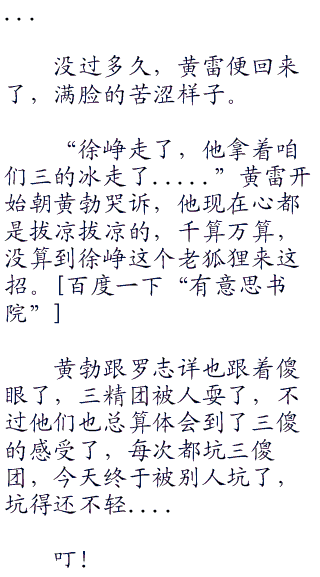 ...
没过多久，黄雷便回来
了，满脸的苦涩样子。
“徐峥走了，他拿着咱
们三的冰走了.....”黄雷开
始朝黄勃哭诉，他现在心都
是拔凉拔凉的，千算万算，
没算到徐峥这个老狐狸来这
招。[百度一下“有意思书
院”]
黄勃跟罗志详也跟着傻
眼了，三精团被人耍了，不
过他们也总算体会到了三傻
的感受了，每次都坑三傻
团，今天终于被别人坑了，
坑得还不轻....
叮！